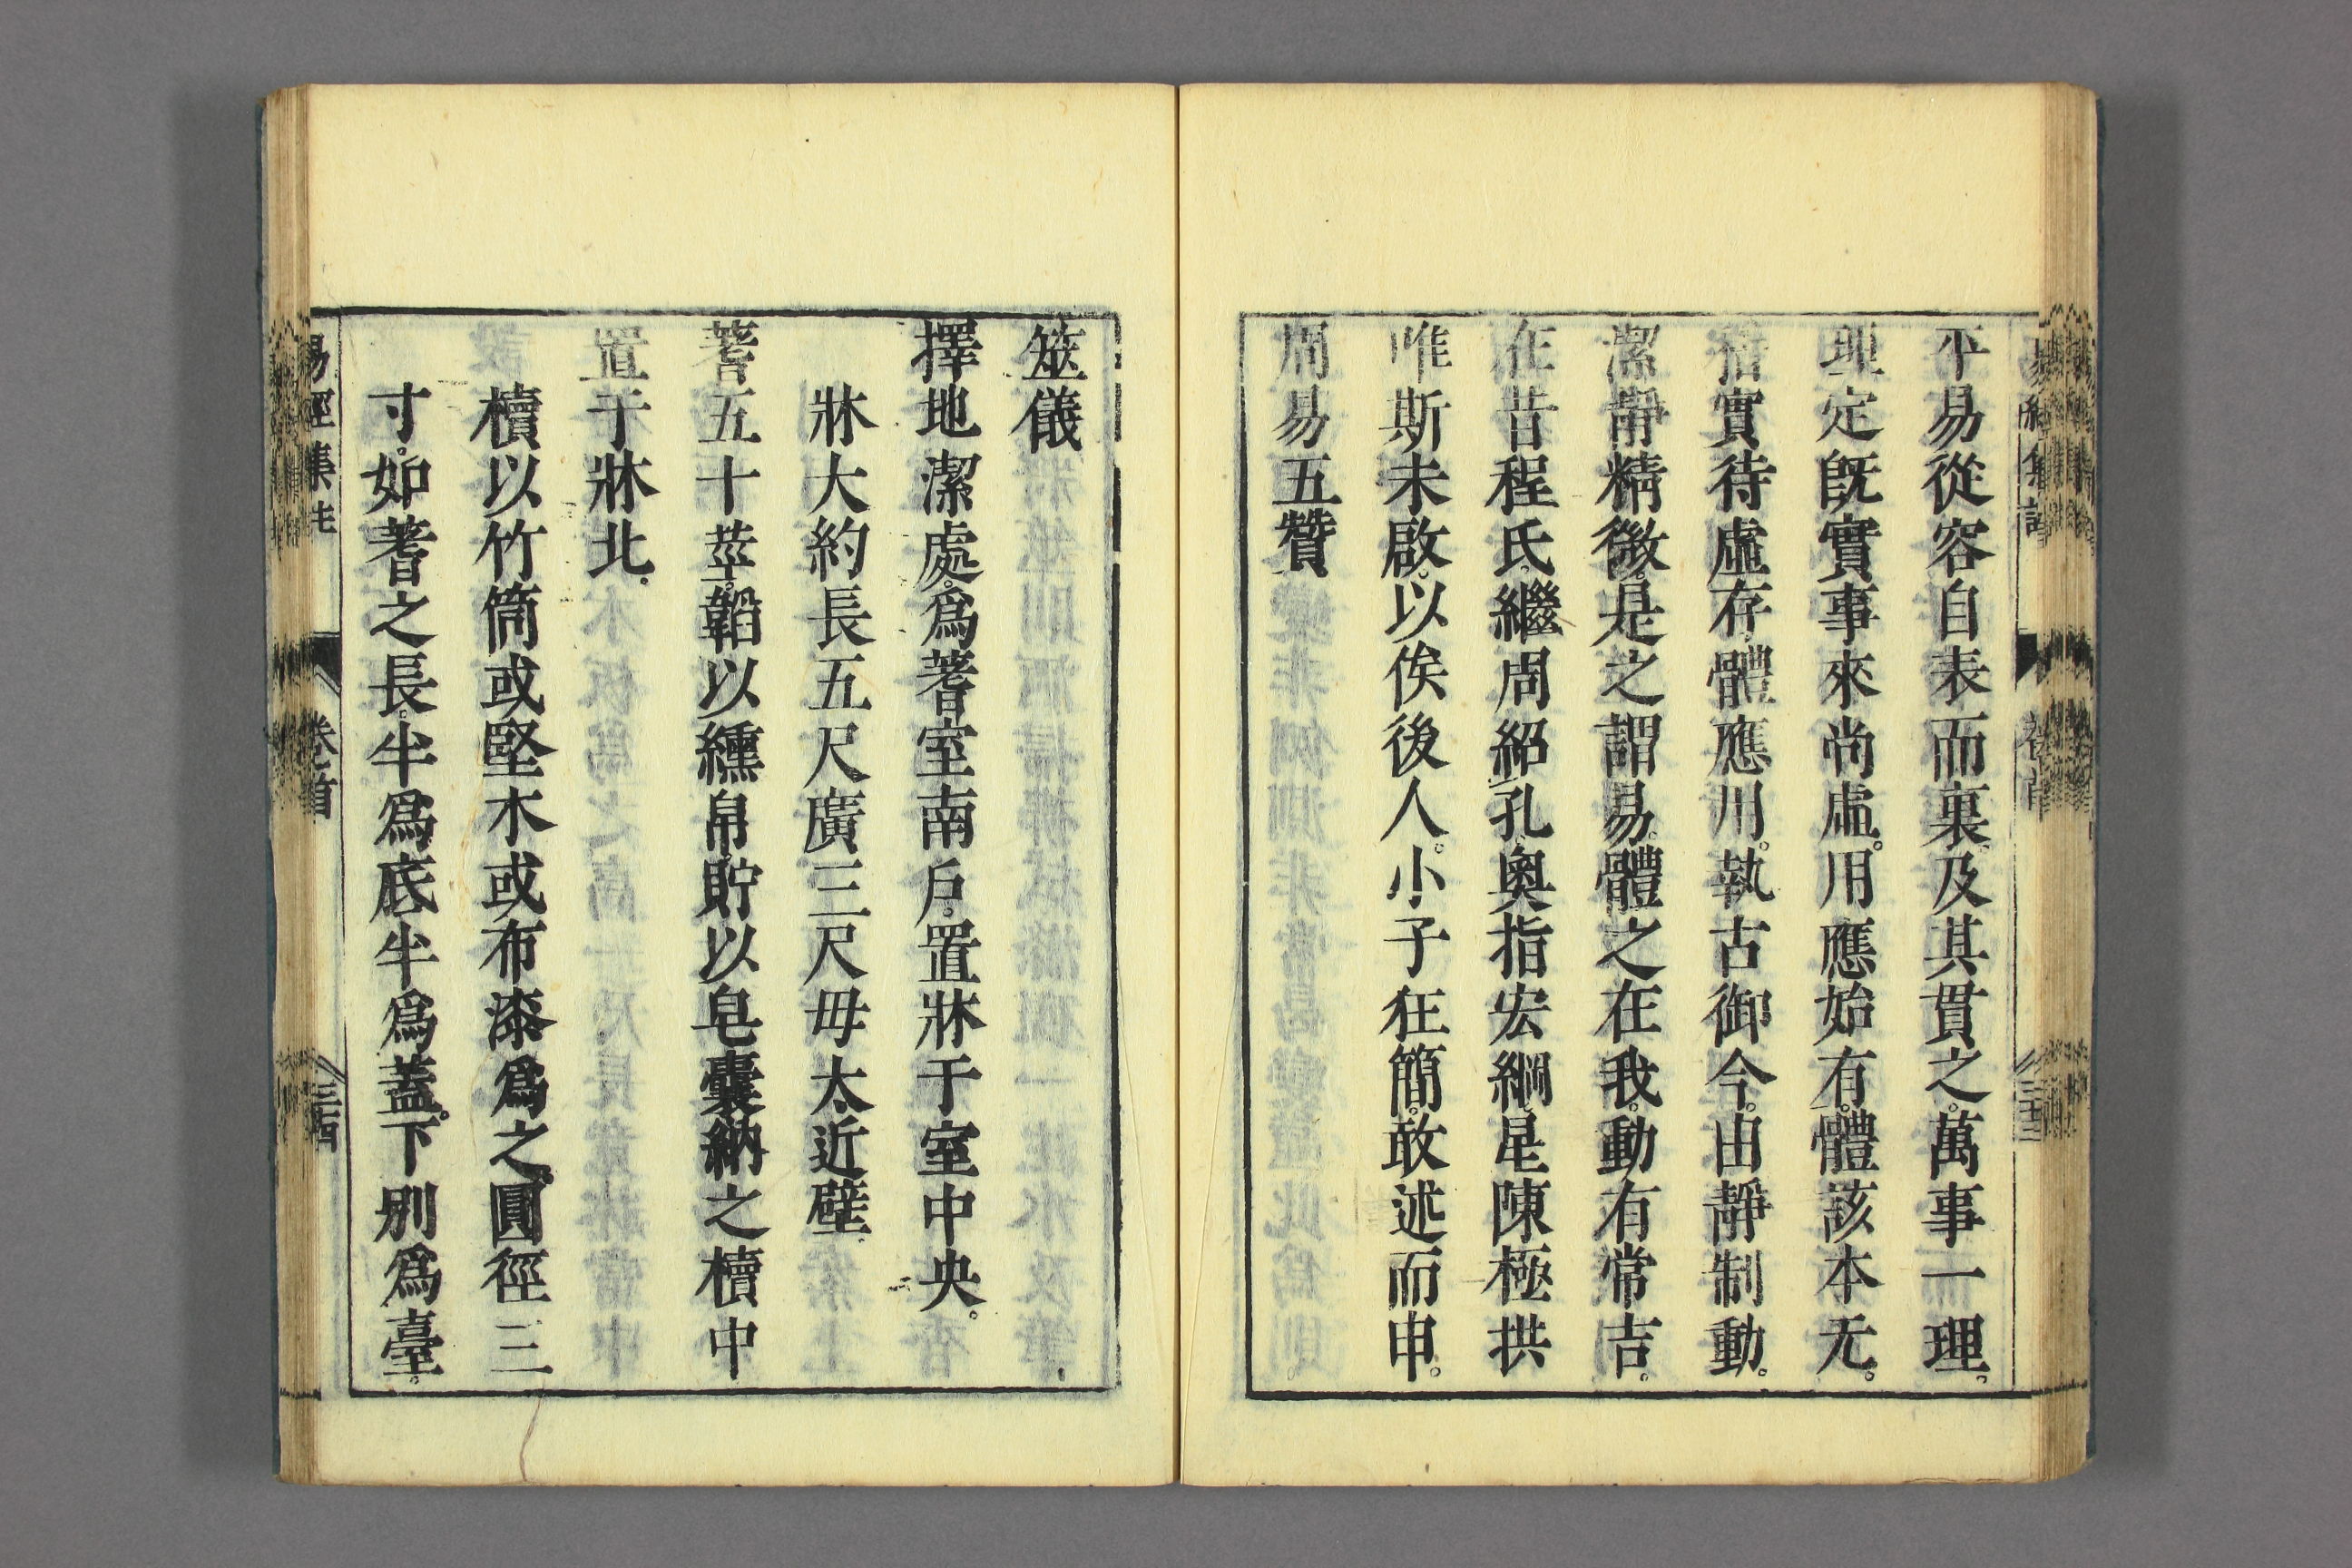 平易從容自表而裏及其貫之。萬事一理。
理定旣實事來尚虛。用應始有。體該本无。
稽實待虛存體應用。執古御今。由靜制動。
潔靜精微。是之謂易。體之在我。動有常吉。
在昔程氏。繼周紹孔奧指宏綱星陳極拱
唯斯未啟。以俟後人。小子狂簡。敢述而申。
周易五贊
筮儀
擇地潔處。爲蓍室南戶。置牀于室中央。
牀大約長五尺廣三尺毋太近壁
蓍五十莖。韜以纁帛貯以皂囊納之櫝中
置于牀北。
櫝以竹筒或堅木或布漆爲之。圓徑三
寸。如蓍之長。半爲底半爲蓋。下別爲臺。
易經集註
卷首
三十四